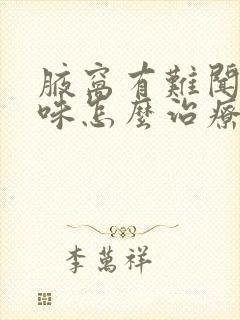 腋窩有難聞
味怎麼治療
李萬祥